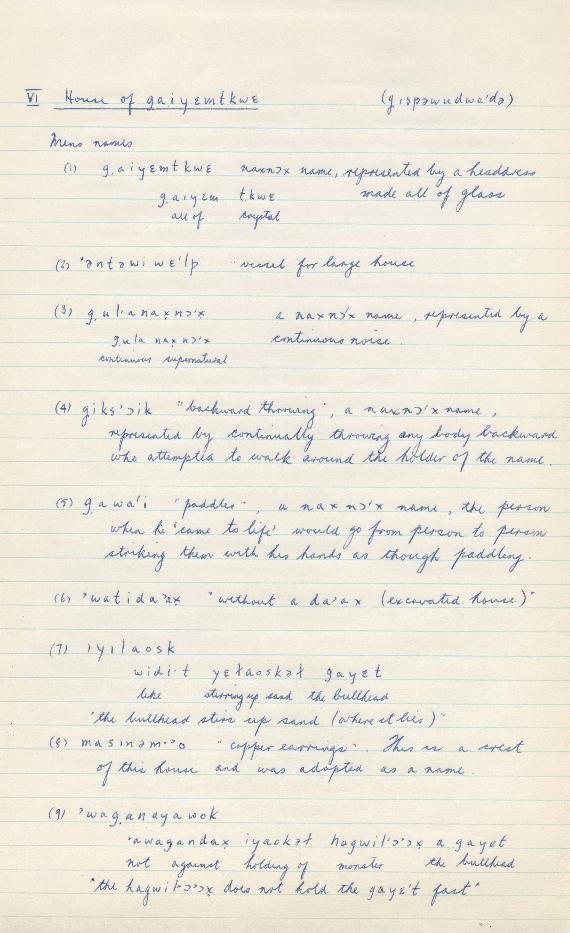 VI House of g̣aiyɛmtkwɛ (gɪspəwudwɛ'də)
Mens names
(1) g̣aiyɛmtkwɛ naxnɔx name, represented by a headdress
g̣aiyɛm t.kwɛ made all of glass
all of crystal
(2) 'əntəwiwɛ'lp vessel for large house
(3) g̣ul·anax̣nɔ'x a naxnɔ'x name, represented by a
g̣ula nax̣nɔ'x continuous noise.
continuous supernatural
(4) giks'ɔik "backward throwing", a naxnɔ'x name,
represented by continually throwing any body backward
who attempted to walk around the holder of the name.
(5) g̣awa'i "paddles", a naxnɔ'x name, the person
when he 'came to life' would go from person to person
striking them with his hands as though paddling.
(6) 'watida'ax̣ "without a da'ax (excavated house)"
(7) 'ɪyɪlaosk
widi·t yɛɫaoskəɫ gayɛt
like stirring up sand the bullhead
"the bullhead stirs up sand (where it lies)"
(8) masɪnəm·'o "copper earrings". This is a crest
of this house and was adopted as a name.
(9) 'wag̣anayawok
'awagandax̣ iyaokəɫ hagwil'ɔ'ɔx̣ a gayɛt
not against holding of monster the bullhead
"the hagwil'ɔ'ɔx̣ does not hold the gayɛ't fast"